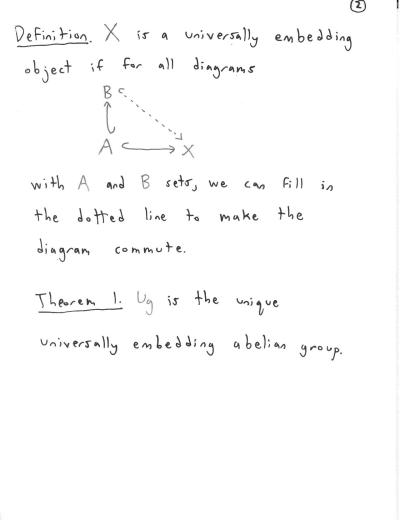 2
Definition. X is a universally embedding
object if for all diagrams
B
A X
with A and B sets, we can fill in
the dotted line to make the
diagram commute.
Theorem 1. Ug is the unique
universally embedding abelian group.